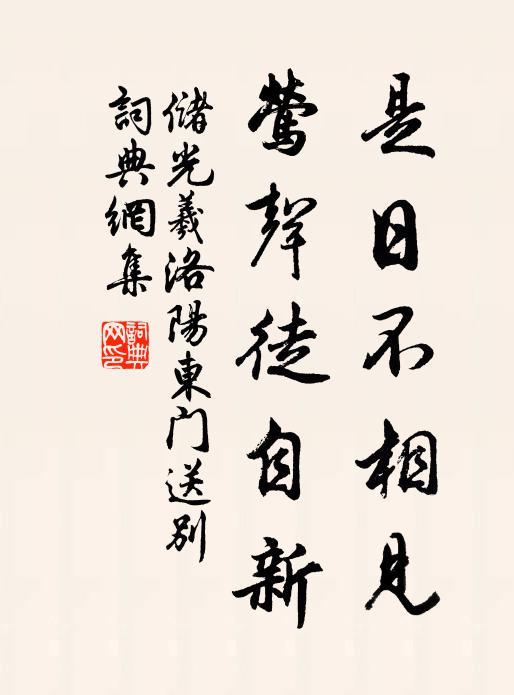 是日不相見
鶯聲徒自新
儲光羲洛陽東門送別
詞典網集
詞典
网印